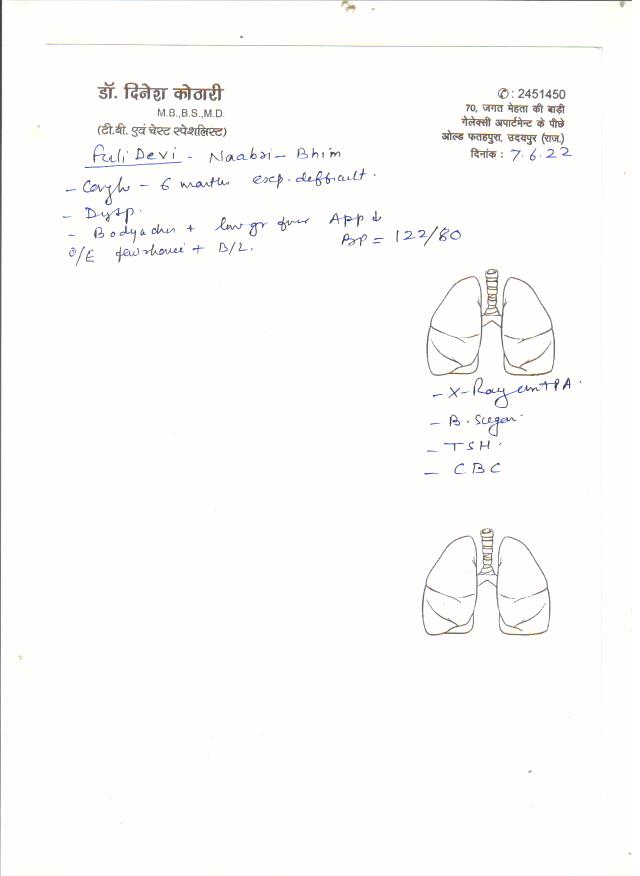 डॉ. दिनेश कोठारी
M.B.,B.S.,M.D.
(टी.बी. एवं चेस्ट स्पेशलिस्ट)
✆: 2451450
70, जगत मेहता की बाड़ी
गेलेक्सी अपार्टमेन्ट के पीछे
ओल्ड फतहपुरा, उदयपुर (राज.)
दिनांक : 7.6.22
Fuli Devi - - Bhim
- Cough - 6 months exp. difficult.
-
- Bodyaches + low gr fever App ↓
O/E few + B/L. BP = 122/80
- X-Ray chest PA.
- B. Sugar.
- TSH.
- CBC